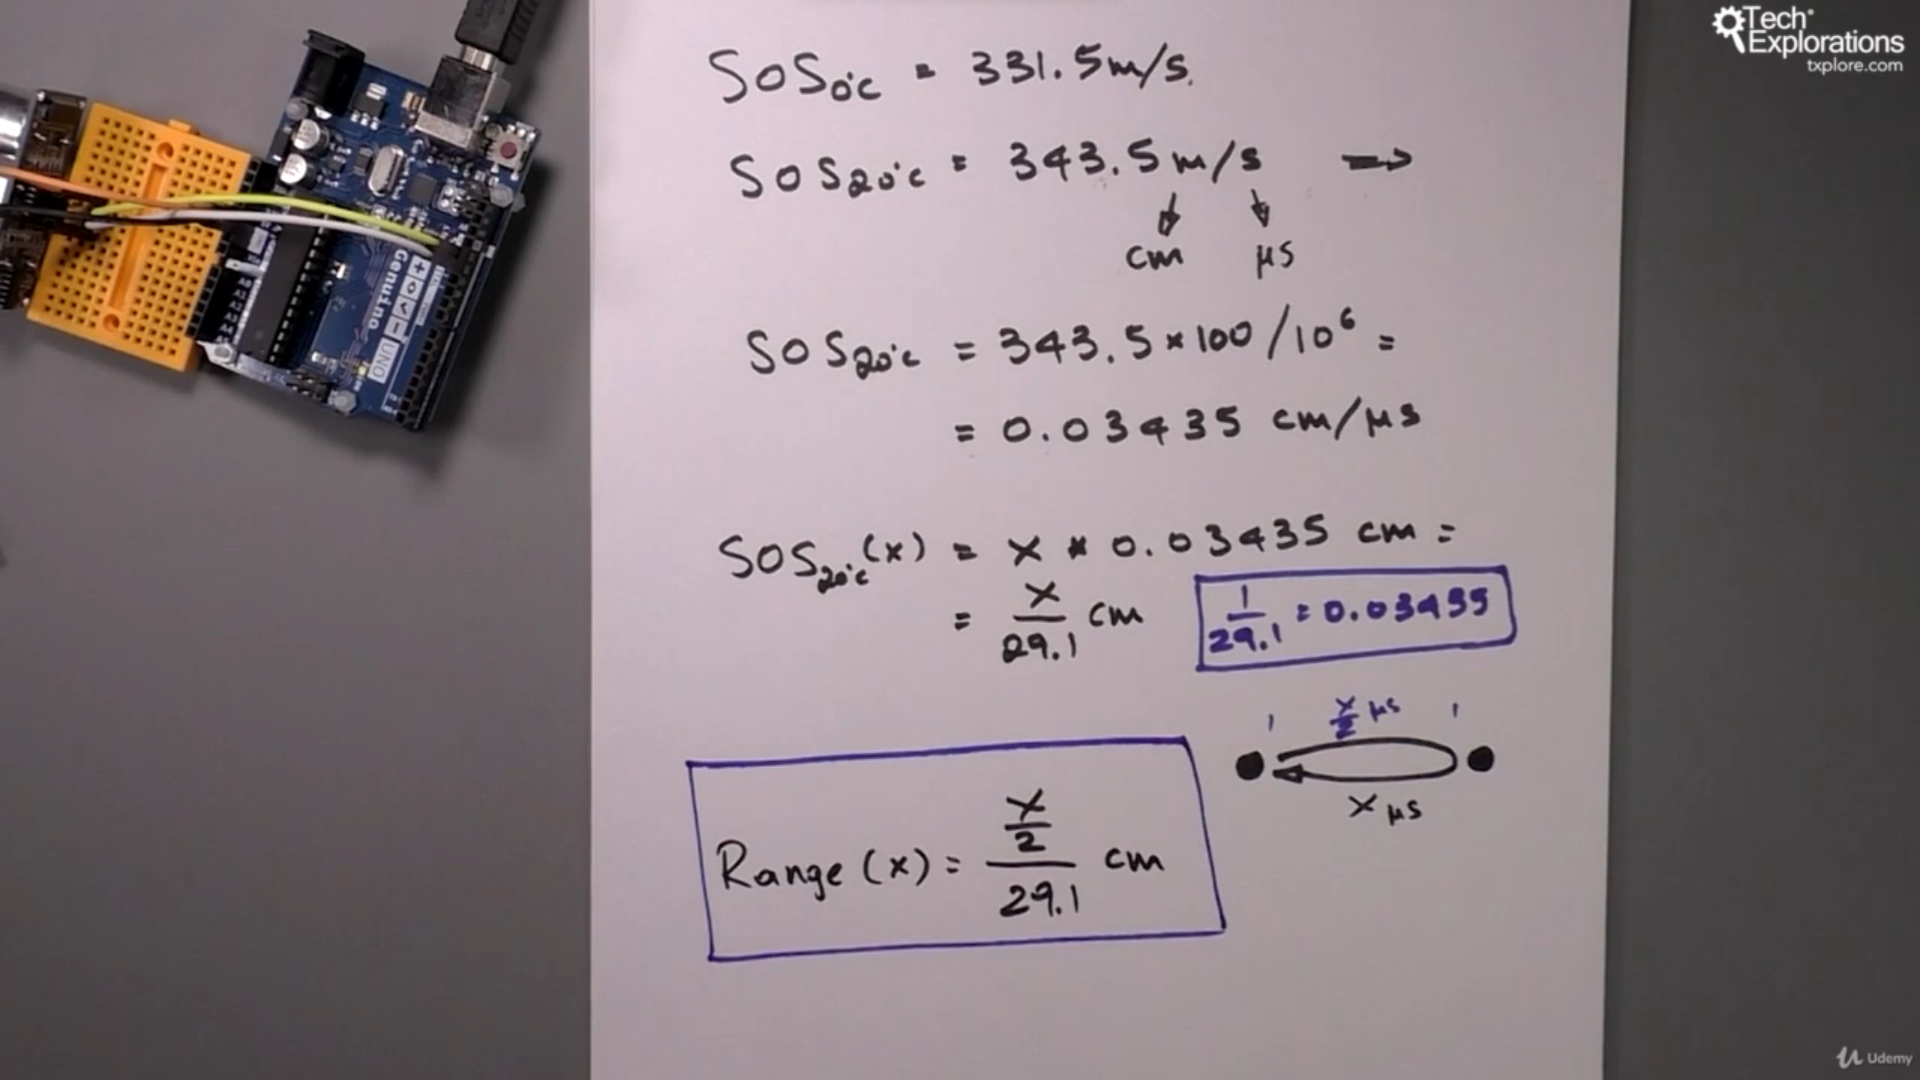 Tech
Explorations
txplore.com
SOS₀°c = 331.5m/s.
SOS₂₀°c = 343.5m/s →
cm μs
SOS₂₀°c = 343.5*100/10⁶ =
= 0.03435 cm/μs
SOS₂₀°c(x) = x * 0.03435 cm =
= x/29.1 cm
1/29.1 = 0.03435
x/2 μs
x μs
Range (x) = (x/2)/29.1 cm
Genuino
UNO
Udemy